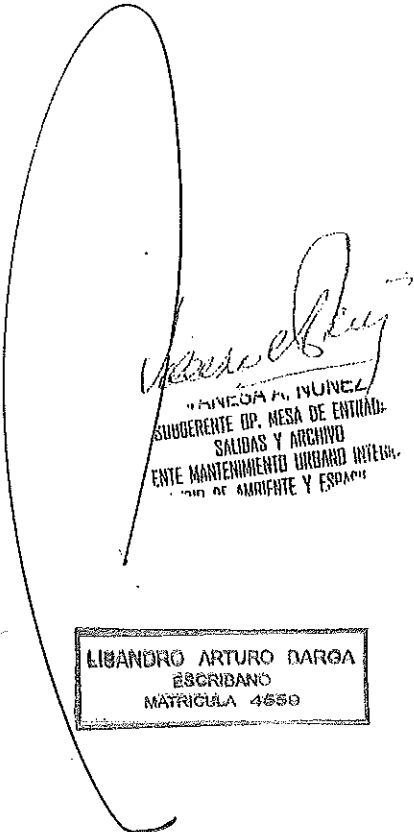 VANESA A. NUÑEZ
SUBGERENTE OP. MESA DE ENTRADAS
SALIDAS Y ARCHIVO
ENTE MANTENIMIENTO URBANO INTEGR
AMBIENTE Y ESPACI
LISANDRO ARTURO DARGA
ESCRIBANO
MATRICULA 4559